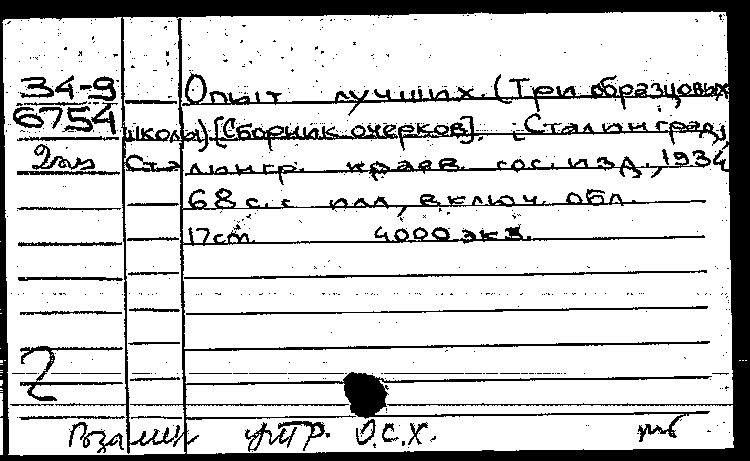 34-9
6754
2экз
Опыт лучших. (Три образцовых
школы) [Сборник очерков]. Сталинград,
Сталингр. краев. гос. изд., 1934
68 с. с илл, включ. обл.
17 cm. 4000 экз.
2
Взамен утр. О.С.Х.